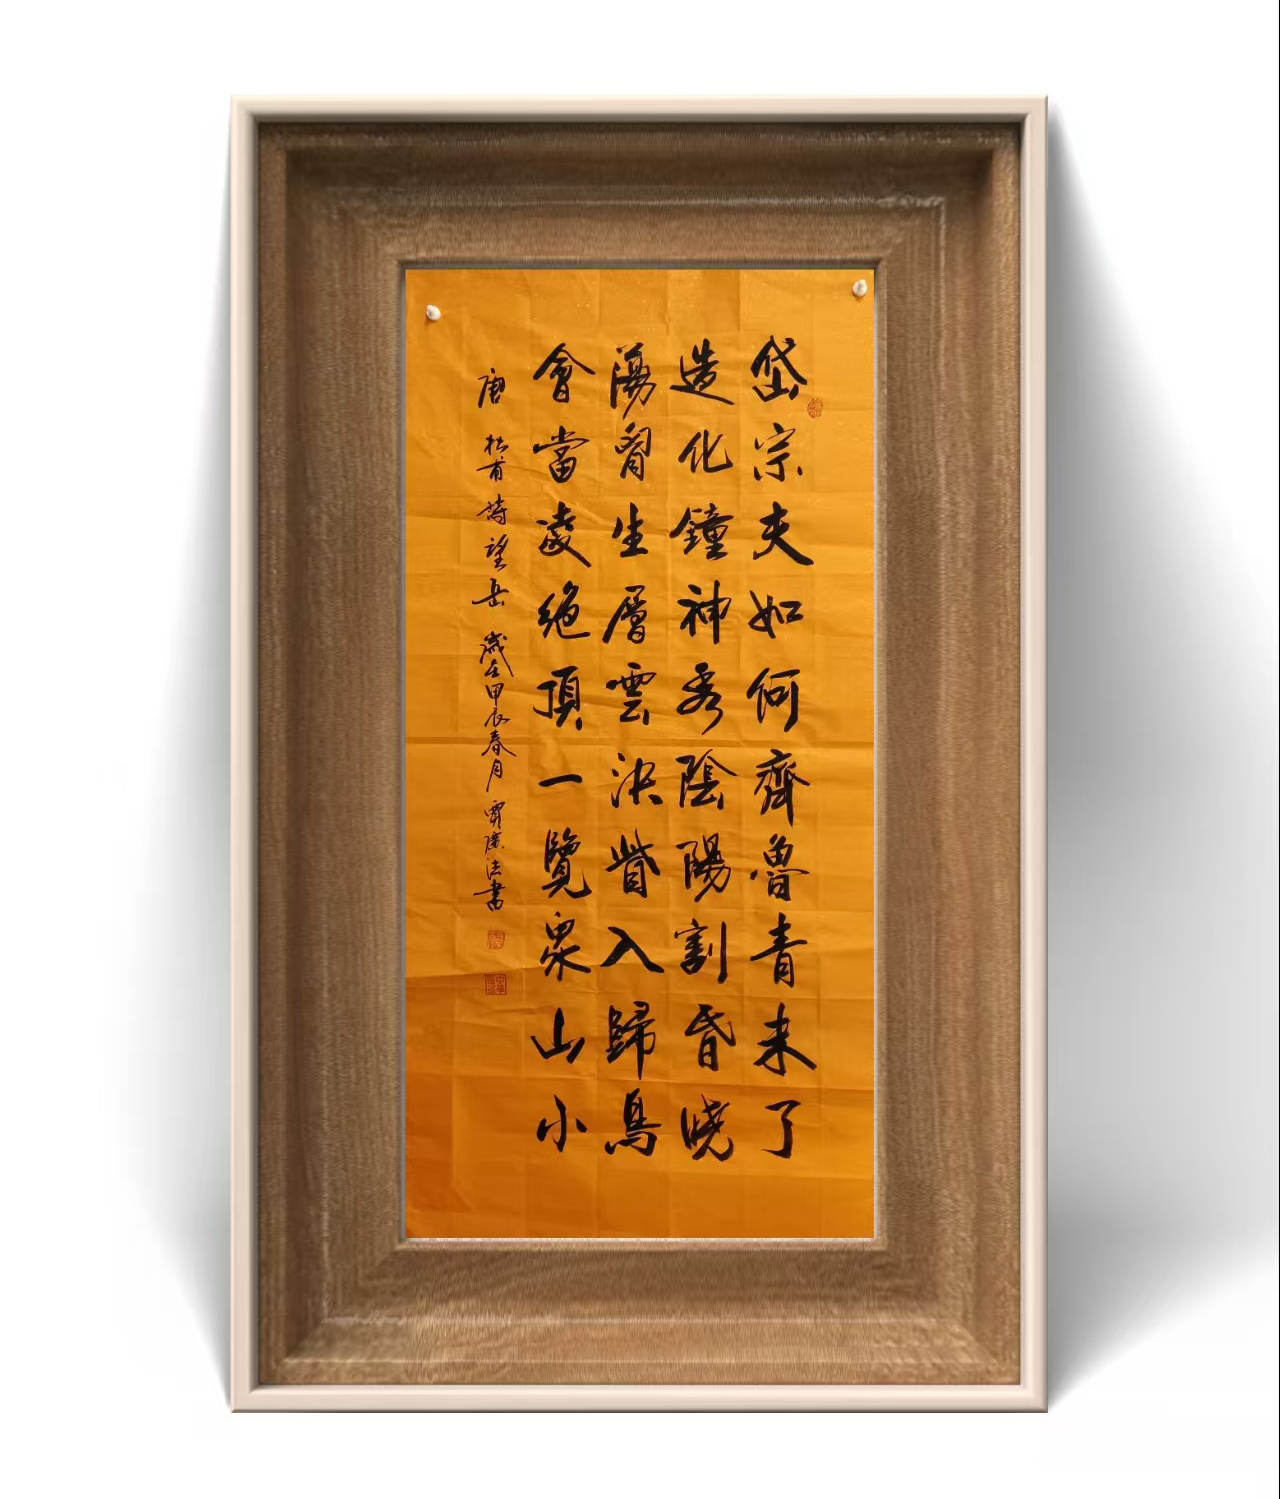 岱宗夫如何齊魯青未了
造化鐘神秀陰陽割昏曉
蕩胷生層雲決眥入歸鳥
會當凌絕頂一覽眾山小
唐 杜甫詩望岳 歲在甲辰春月 賈廣法書